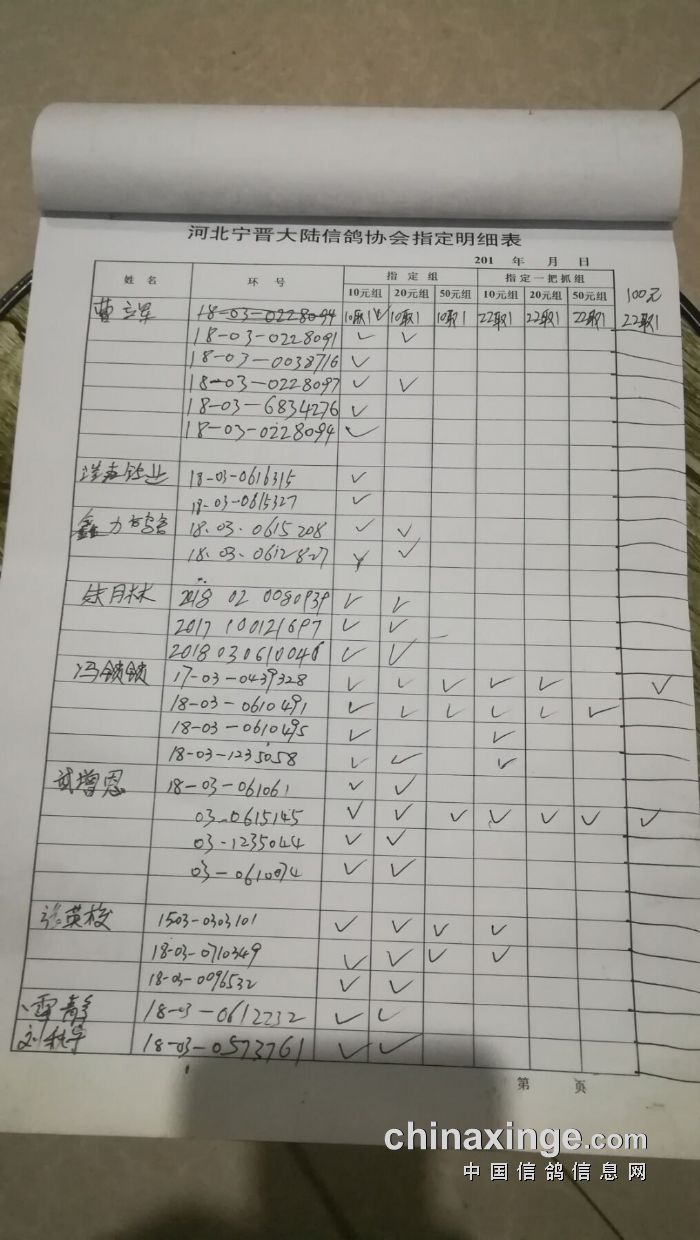 河北宁晋大陆信鸽协会指定明细表
201 年 月 日
姓 名 环 号 指 定 组 指定一把抓组
10元组 20元组 50元组 10元组 20元组 50元组 100元
曹立军 18-03-0228094 10取1 ✓ 10取1 10取1 22取1 22取1 22取1 22取1
18-03-0228091 ✓ ✓
18-03-0038716 ✓
18-03-0228097 ✓ ✓
18-03-6834276 ✓
18-03-0228094 ✓
18-03-0616315 ✓
18-03-0615327 ✓
鑫力 18.03.0615208 ✓ ✓
18.03.0612827 ✓ ✓
朱月林 2018 02 0080939 ✓ ✓
2017 100121697 ✓ ✓
2018030610046 ✓ ✓
冯锁锁 17-03-0439328 ✓ ✓ ✓ ✓ ✓ ✓
18-03-0610491 ✓ ✓ ✓ ✓ ✓ ✓
18-03-0610495 ✓ ✓
18-03-1235058 ✓ ✓ ✓
武增恩 18-03-061061 ✓ ✓
03-0615145 ✓ ✓ ✓ ✓ ✓ ✓ ✓
03-1235044 ✓ ✓
03-0610074 ✓ ✓
张英校 1503-0303101 ✓ ✓ ✓ ✓
18-03-0710349 ✓ ✓ ✓ ✓
18-03-0096532 ✓ ✓
雷静 18-03-0612232 ✓ ✓
刘 18-03-0573761 ✓ ✓
第 页
chinaxinge.com
中国信鸽信息网